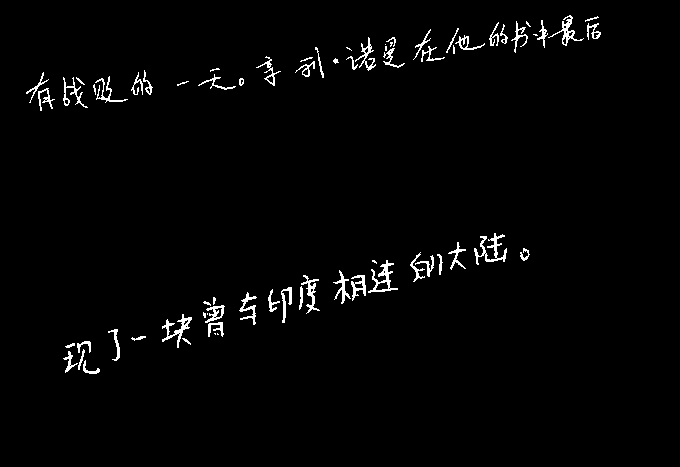 有战败的一天。亨利·诺曼在他的书中最后
现了一块曾与印度相连的大陆。